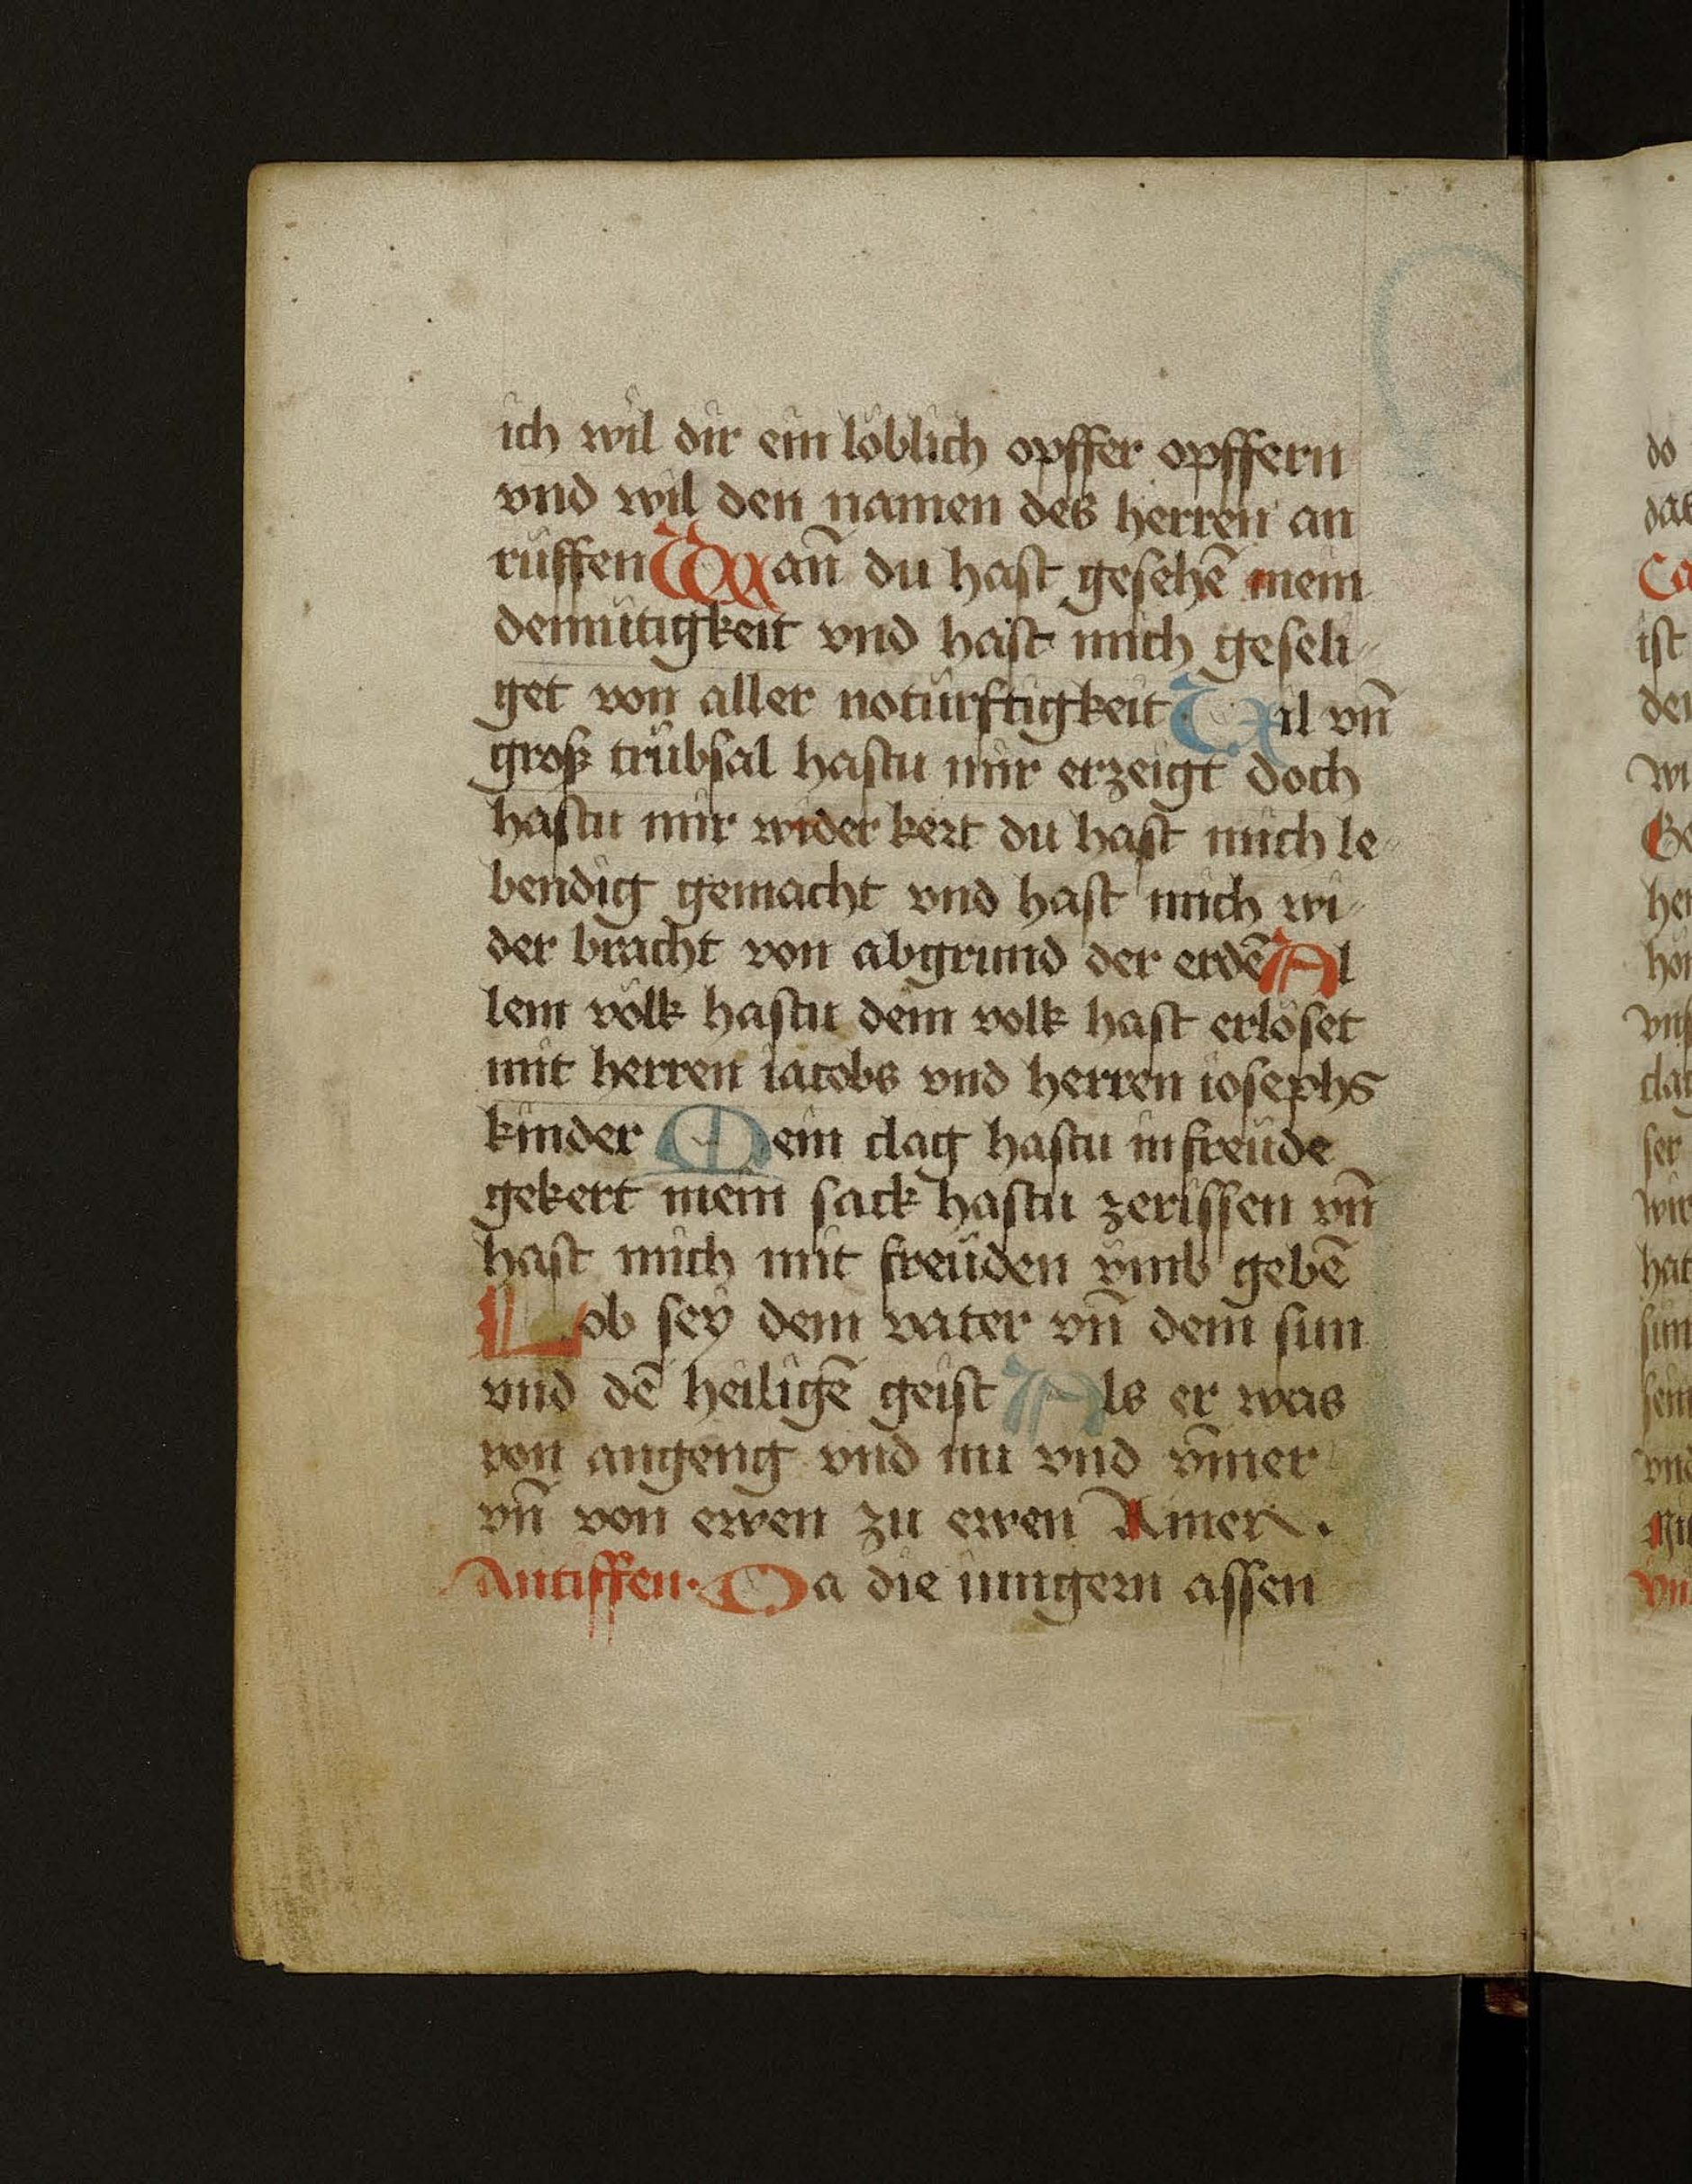 ich wil dir ein löblich opffer opffern
vnd wil den namen des herren an
ruffen Wañ du hast gesehē mein
demütigkeit vnd hast mich geseli-
get von aller notürftigkeit Vil vñ
groß trübsal hastu mir erzeigt doch
hastu mir wider kert du hast mich le-
bendig gemacht vnd hast mich wi-
der bracht von abgrund der erdē Al
lem volk hastu dein volk hast erlöset
mit herren iacobs vnd herren iosephs
kinder Mein clag hastu in freüde
gekert mein sack hastu zerissen vñ
hast mich mit freüden vmb gebē
Lob sey dem vater vñ dem sun
vnd dē heiligē geist Als er was
von angeng vnd nu vnd ymer
vñ von ewen zu ewen Amen.
Antiffen. Da die iungern assen